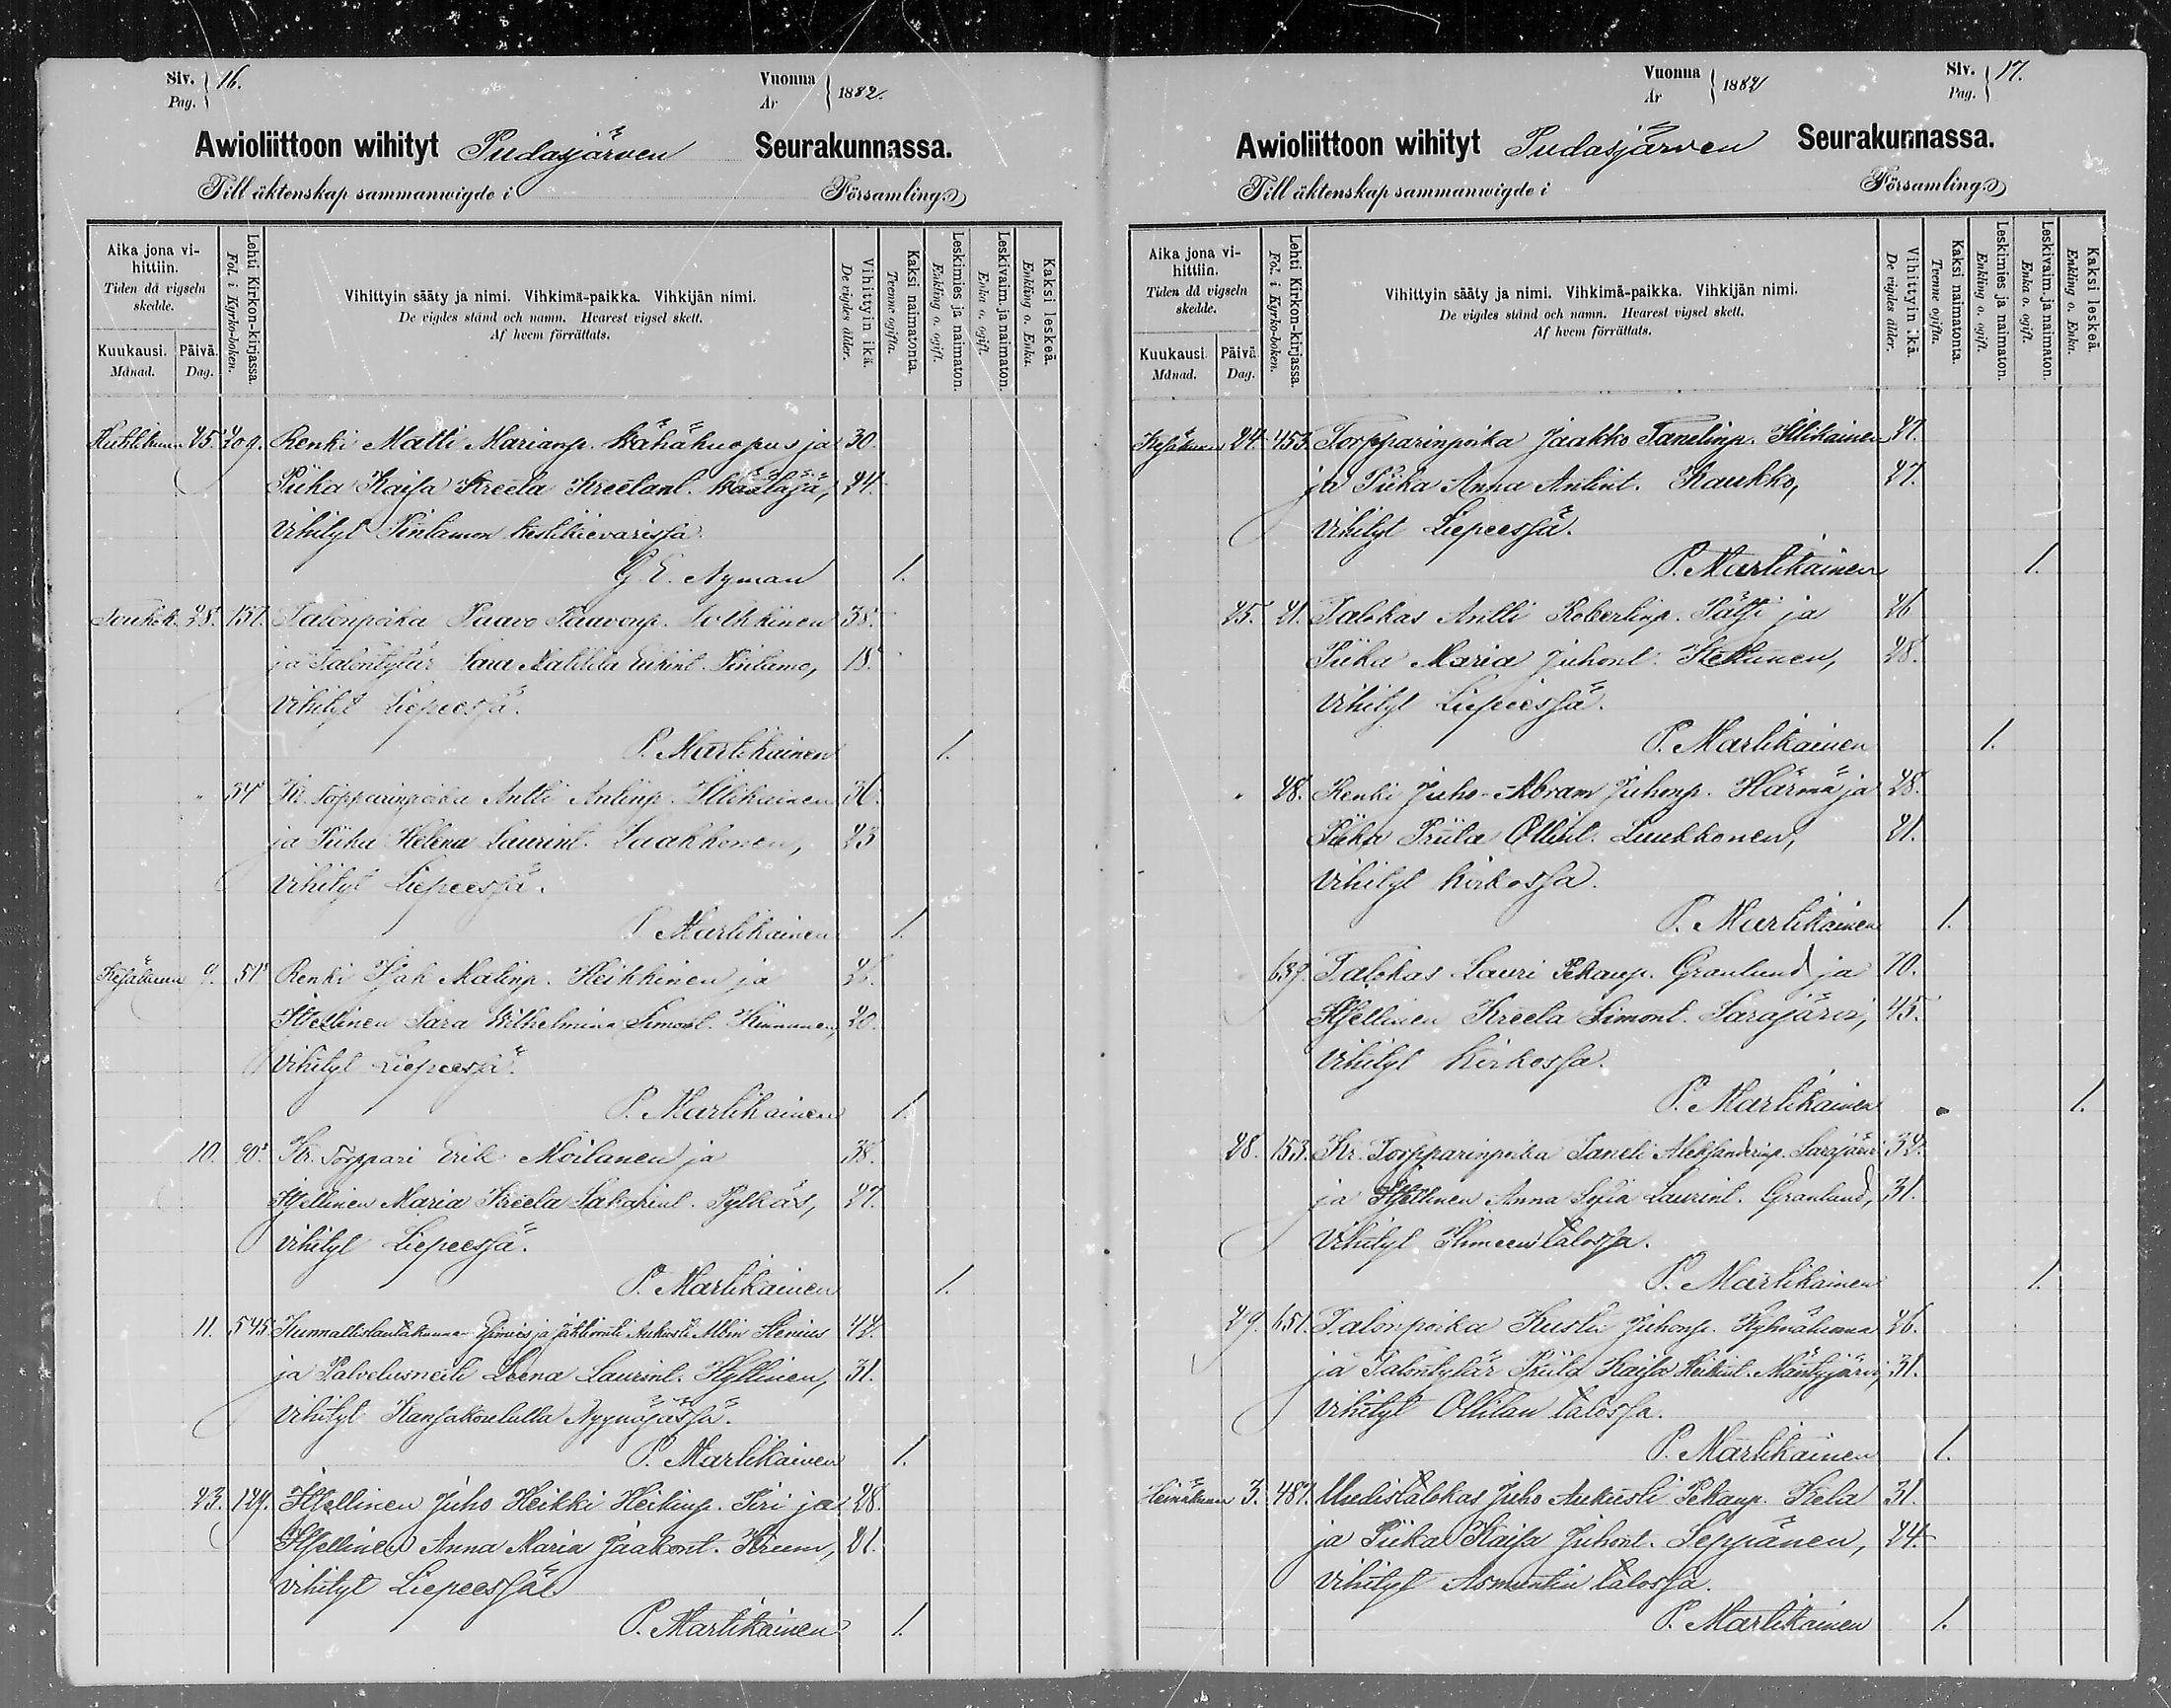 Siv. Pag. 16.
Vuonna År 1882.
Awioliittoon wihityt Pudasjärven Seurakunnassa.
Till äktenskap sammanwigde i Församling.
Aika jona vihittiin. Tiden då vigseln skedde.
Kuukausi. Månad.
Päivä. Dag.
Lehti Kirkon-kirjassa. Fol. i Kyrko-boken.
Vihittyin sääty ja nimi. Vihkimä-paikka. Vihkijän nimi.
De vigdes stånd och namn. Hvarest vigsel skett.
Af hvem förrättats.
Vihittyin ikä. De vigdes ålder.
Kaksi naimatonta. Tvenne ogifta.
Leskimies ja naimaton. Enkling o. ogift.
Leskivaim. ja naimaton. Enka o. ogift.
Kaksi leskeä. Enkling o. Enka.
Huhtikuun 25. 209. Renki Matti Marianp. Wähäkuopus ja 30.
Piika Kaisa Kreeta Kreetant. 24.
vihityt Pintamon kestikievarissa
G. E. Nyman 1.
Toukok. 28. 137. Talonpoika Paavo Paavonp. Tolkkinen 38.
ja Talontytär Sara Matilda Erkint. Pintamo, 18.
vihityt Liepeessä.
P. Martikainen 1.
" 34 Kr. Torpparinpoika Antti Antinp. Illikainen 36.
ja Piika Helena Laurint. Laakkonen, 23
vihityt Liepeessä.
P. Martikainen 1.
Kesäkuun 9. 51 Renki Isak Matinp. Heikkinen ja 26.
Itsellinen Sara Wilhelmina Simont. Kinnunen, 20.
vihityt Liepeessä.
P. Martikainen 1.
10. 90. Kr. Torppari Erik Moilanen ja 38.
Itsellinen Maria Kreeta Sakarint. Pylkäs, 27.
vihityt Liepeessä.
P. Martikainen 1.
11. 545. Kunnallislautakunnan Esimies ja Aukusti Albin Stenius 42.
ja Palvelusneiti Leena Laurint. Hyllinen, 31.
vihityt Kansakoululla
P. Martikainen 1.
23. 129. Itsellinen Juho Heikki Heikinp. Piri ja 28.
Itsellinen Anna Maria Jaakont. 21.
vihityt Liepeessä
P. Martikainen 1.
Vuonna År 1882
Siv. Pag. 17.
Awioliittoon wihityt Pudasjärven Seurakunnassa.
Till äktenskap sammanwigde i Församling.
Aika jona vihittiin. Tiden då vigseln skedde.
Kuukausi. Månad.
Päivä. Dag.
Lehti Kirkon-kirjassa. Fol. i Kyrko-boken.
Vihittyin sääty ja nimi. Vihkimä-paikka. Vihkijän nimi.
De vigdes stånd och namn. Hvarest vigsel skett.
Af hvem förrättats.
Vihittyin ikä. De vigdes ålder.
Kaksi naimatonta. Tvenne ogifta.
Leskimies ja naimaton. Enkling o. ogift.
Leskivaim. ja naimaton. Enka o. ogift.
Kaksi leskeä. Enkling o. Enka.
Kesäkuun 24. 453. Torpparinpoika Jaakko Tanelinp. Illikainen 27.
ja Piika Anna Antint. Kaukko, 27.
vihityt Liepeessä.
P. Martikainen 1.
25. 21. Talokas Antti Robertinp. Pätsi ja 26
Piika Maria Juhont. 28.
vihityt Liepeessä.
P. Martikainen 1.
" 28. Renki Juho Abram Juhonp. Härmä ja 28.
Piika Priita Ollint. Luukkonen, 21.
vihityt kirkossa.
P. Martikainen 1.
639. Talokas Lauri Pekanp. Granlund ja 70.
Itsellinen Kreeta Simont. Sarajärvi, 45.
vihityt kirkossa.
P. Martikainen 1.
28. 153. Kr. Torpparinpoika Taneli Aleksanderinp. Sarajärvi 32.
ja Itsellinen Anna Sofia Laurint. Granlund, 31.
vihityt talossa.
P. Martikainen 1.
29. 651. Talonpoika Kusta Juhonp. Kylmäluoma 26.
ja Talontytär Priita Kaisa Heikint. Mäntyjärvi, 31.
vihityt Ollilan talossa.
P. Martikainen 1.
Heinäkuun 3. 487. Uudistalokas Juho Aukusti Pekanp. Kela 31.
ja Piika Kaisa Juhont. Seppänen, 24.
vihityt Asmuntin talossa.
P. Martikainen 1.